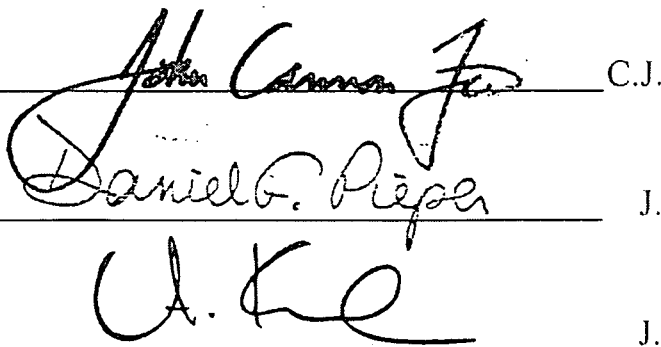 John Cannon Fa. C.J.
Daniel F. Pieper J.
A. K J.